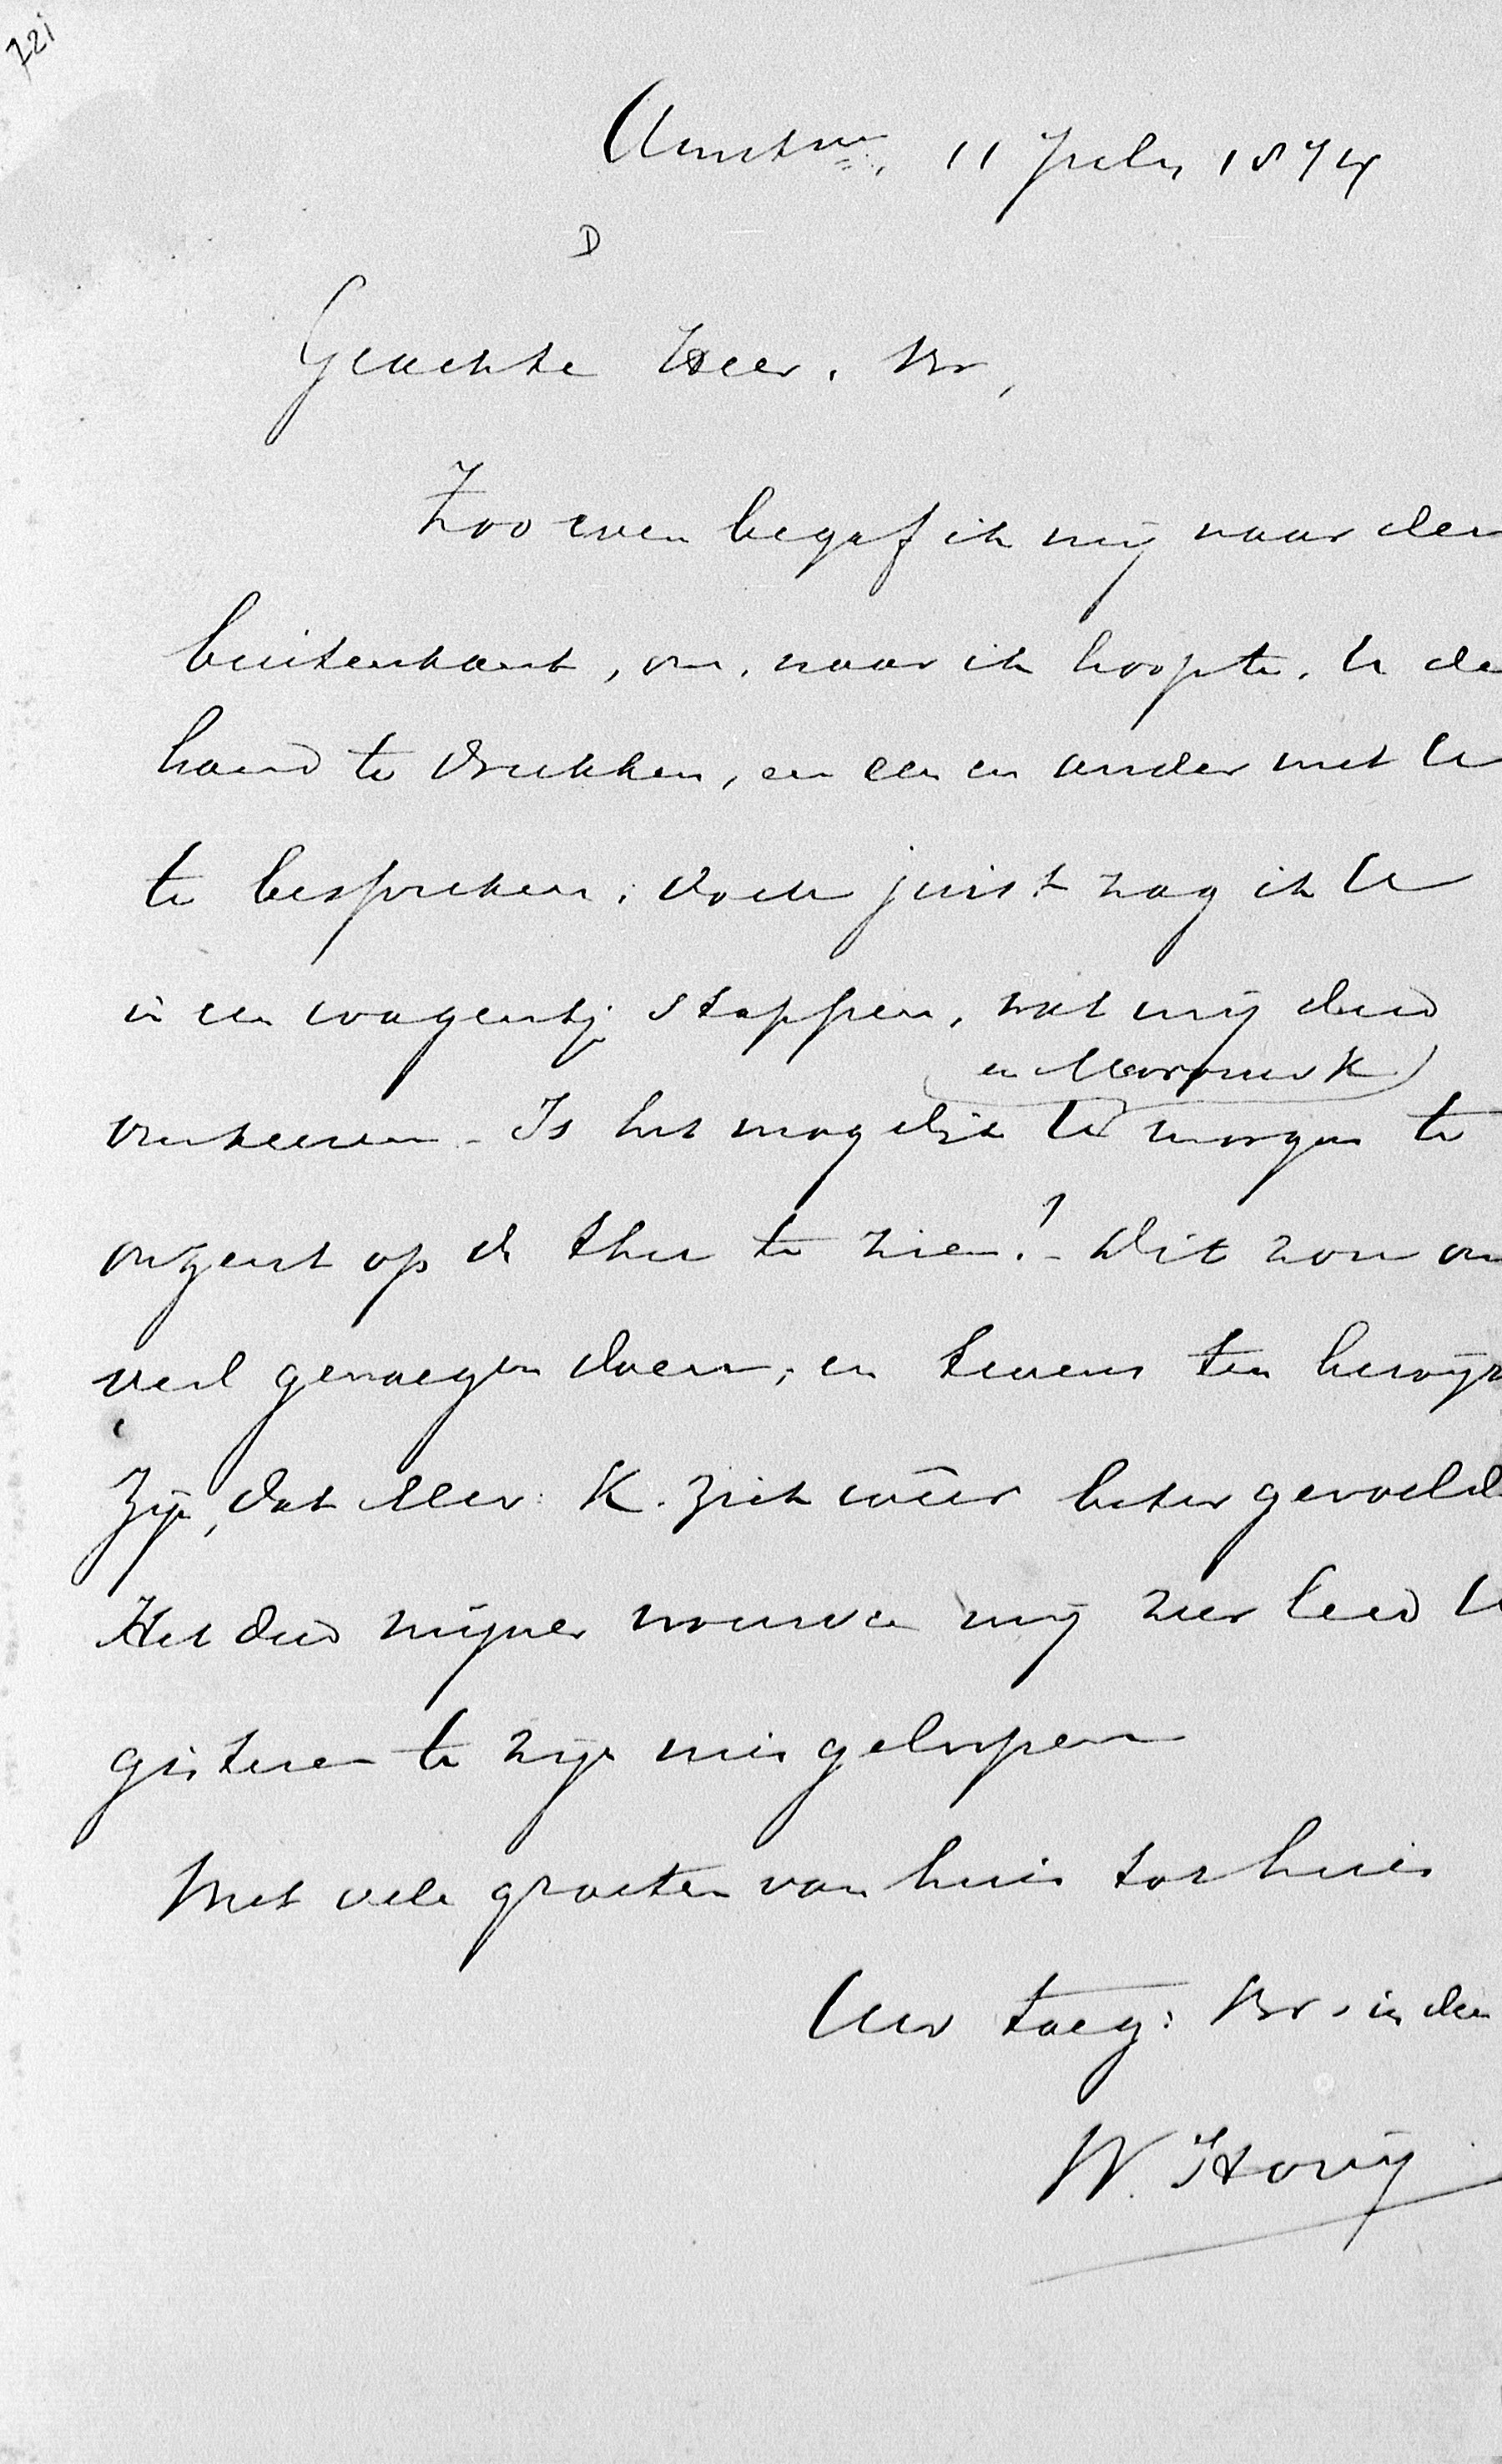 721
Amstm, 11 July 1874
D
Geachte Heer. Br,
Zoo even begaf ik mij naar den
buitenkant, om, naar ik hoopte, U de
hand te drukken, en een en ander met U
te bespreken; doch juist zag ik U
in een wagentje stappen, wat mij deed
en Mevrouw K
omkeeren - Is het mogelijk U morgen te
onzent op de thee te zien? - Dit zou on
veel genoegen doen, en tevens ten bewijze
Zijn, dat Mev: K. zich wêer beter gevoeld
Het deed mijner vrouw en mij zeer leed U
gisteren te zijn misgeloopen
Met vele groeten van huis tot huis
Uw toeg: Br. in den
W. Hovij